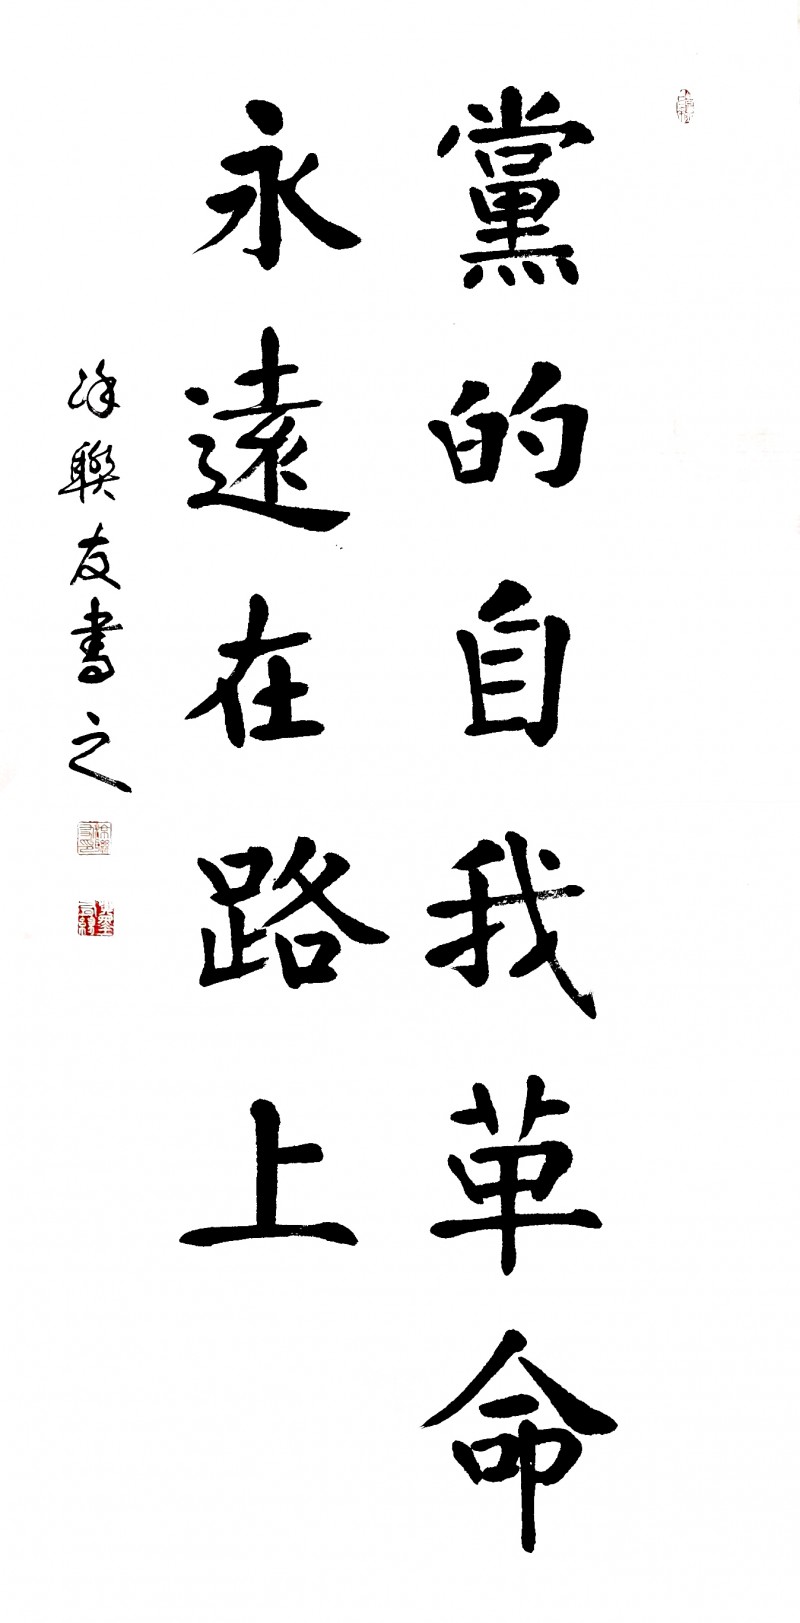 黨的自我革命
永遠在路上
涂聯友書之